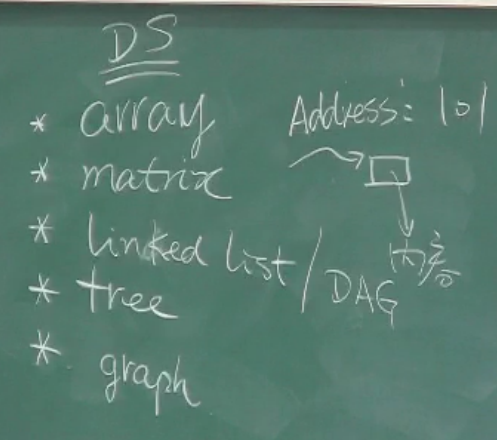 DS
* array
* matrix
* linked list / DAG
* tree
* graph
Address: 101
内容